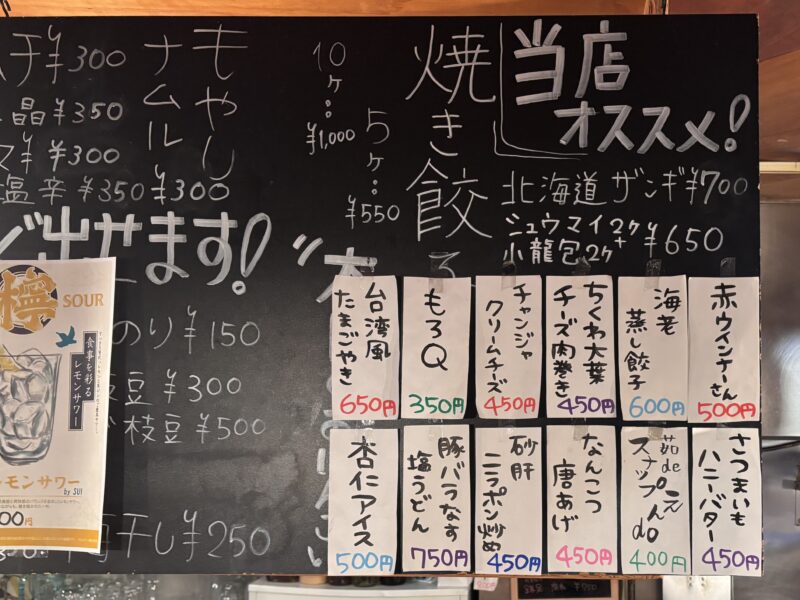 当店
オススメ!
北海道 ザンギ ¥700
シュウマイ2ケ+
小龍包2ケ
¥650
焼き餃
10ケ:¥1,000
5ケ:¥550
もやし
ナムル
¥300
¥300
晶 ¥350
¥300
塩辛 ¥350
出せます!
のり ¥150
枝豆 ¥300
枝豆 ¥500
梅干し ¥250
赤ウインナーさん
500円
海老
蒸し餃子
600円
ちくわ大葉
チーズ肉巻き
450円
チャンジャ
クリームチーズ
450円
もろQ
350円
台湾風
たまごやき
650円
さつまいも
ハニーバター
450円
茹deえ
スナップんdo
400円
なんこつ
唐あげ
450円
砂肝
ニラポン炒め
450円
豚バラなす
塩うどん
750円
杏仁アイス
500円
檸
SOUR
食事を彩る
レモンサワー
レモンサワー
by SUI
00円